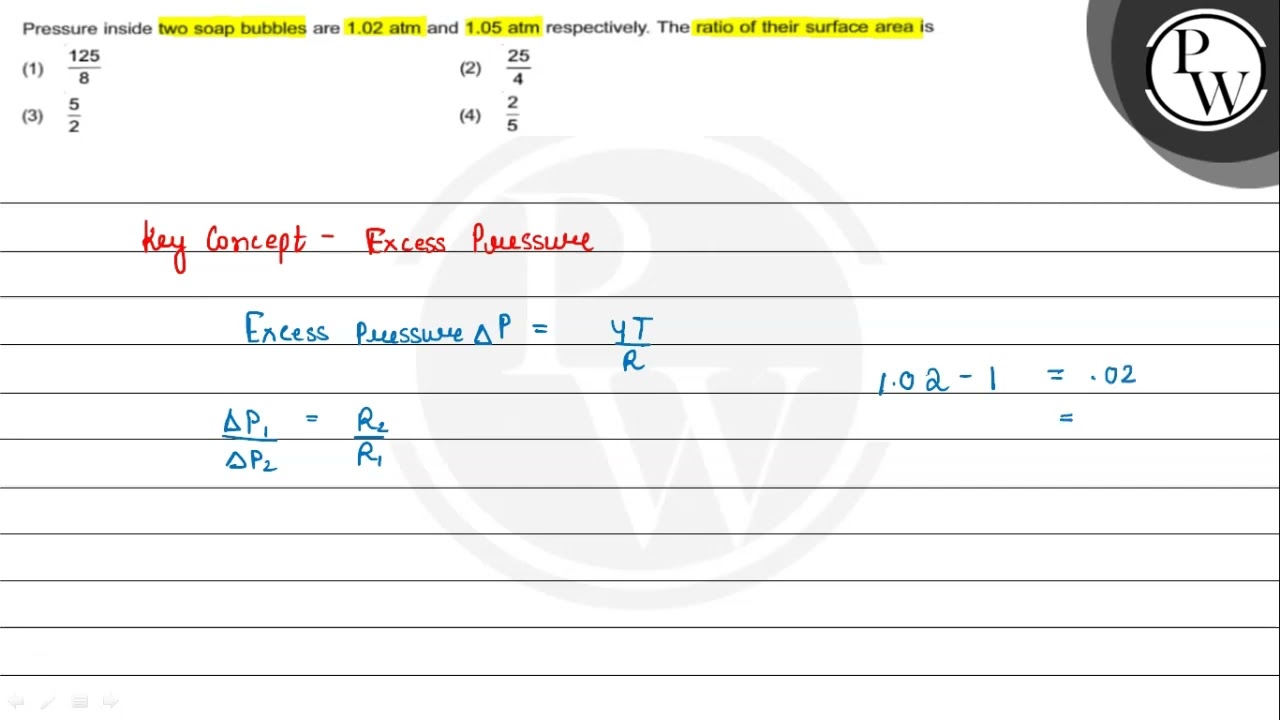 Pressure inside two soap bubbles are 1.02 atm and 1.05 atm respectively. The ratio of their surface area is
(1) 125/8 (2) 25/4
(3) 5/2 (4) 2/5
PW
Key Concept - Excess Pressure
Excess Pressure ΔP = 4T/R
1.02 - 1 = .02
ΔP₁/ΔP₂ = R₂/R₁ =
PW